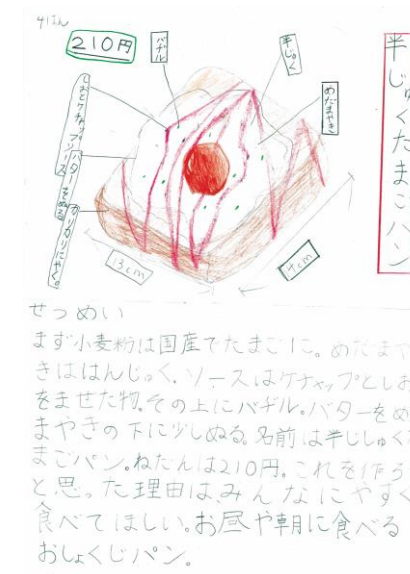 4はん
210円
バヂル
半じゅく
めだまやき
半じゅくたまごパン
しおとケチャップソース
バターをぬる
カリカリにやく。
13cm
4cm
せつめい
まず小麦粉は国産でたまごに。めだまや
きははんじゅく。ソースはケチャップとしお
をませた物。その上にバヂル。バターをめ
まやきの下に少しぬる。名前は半じしゅく
まごパン。ねだんは210円。これを作ろ
と思った理由は、みんなにやすく
食べてほしい。お昼や朝に食べる
おしょくじパン。